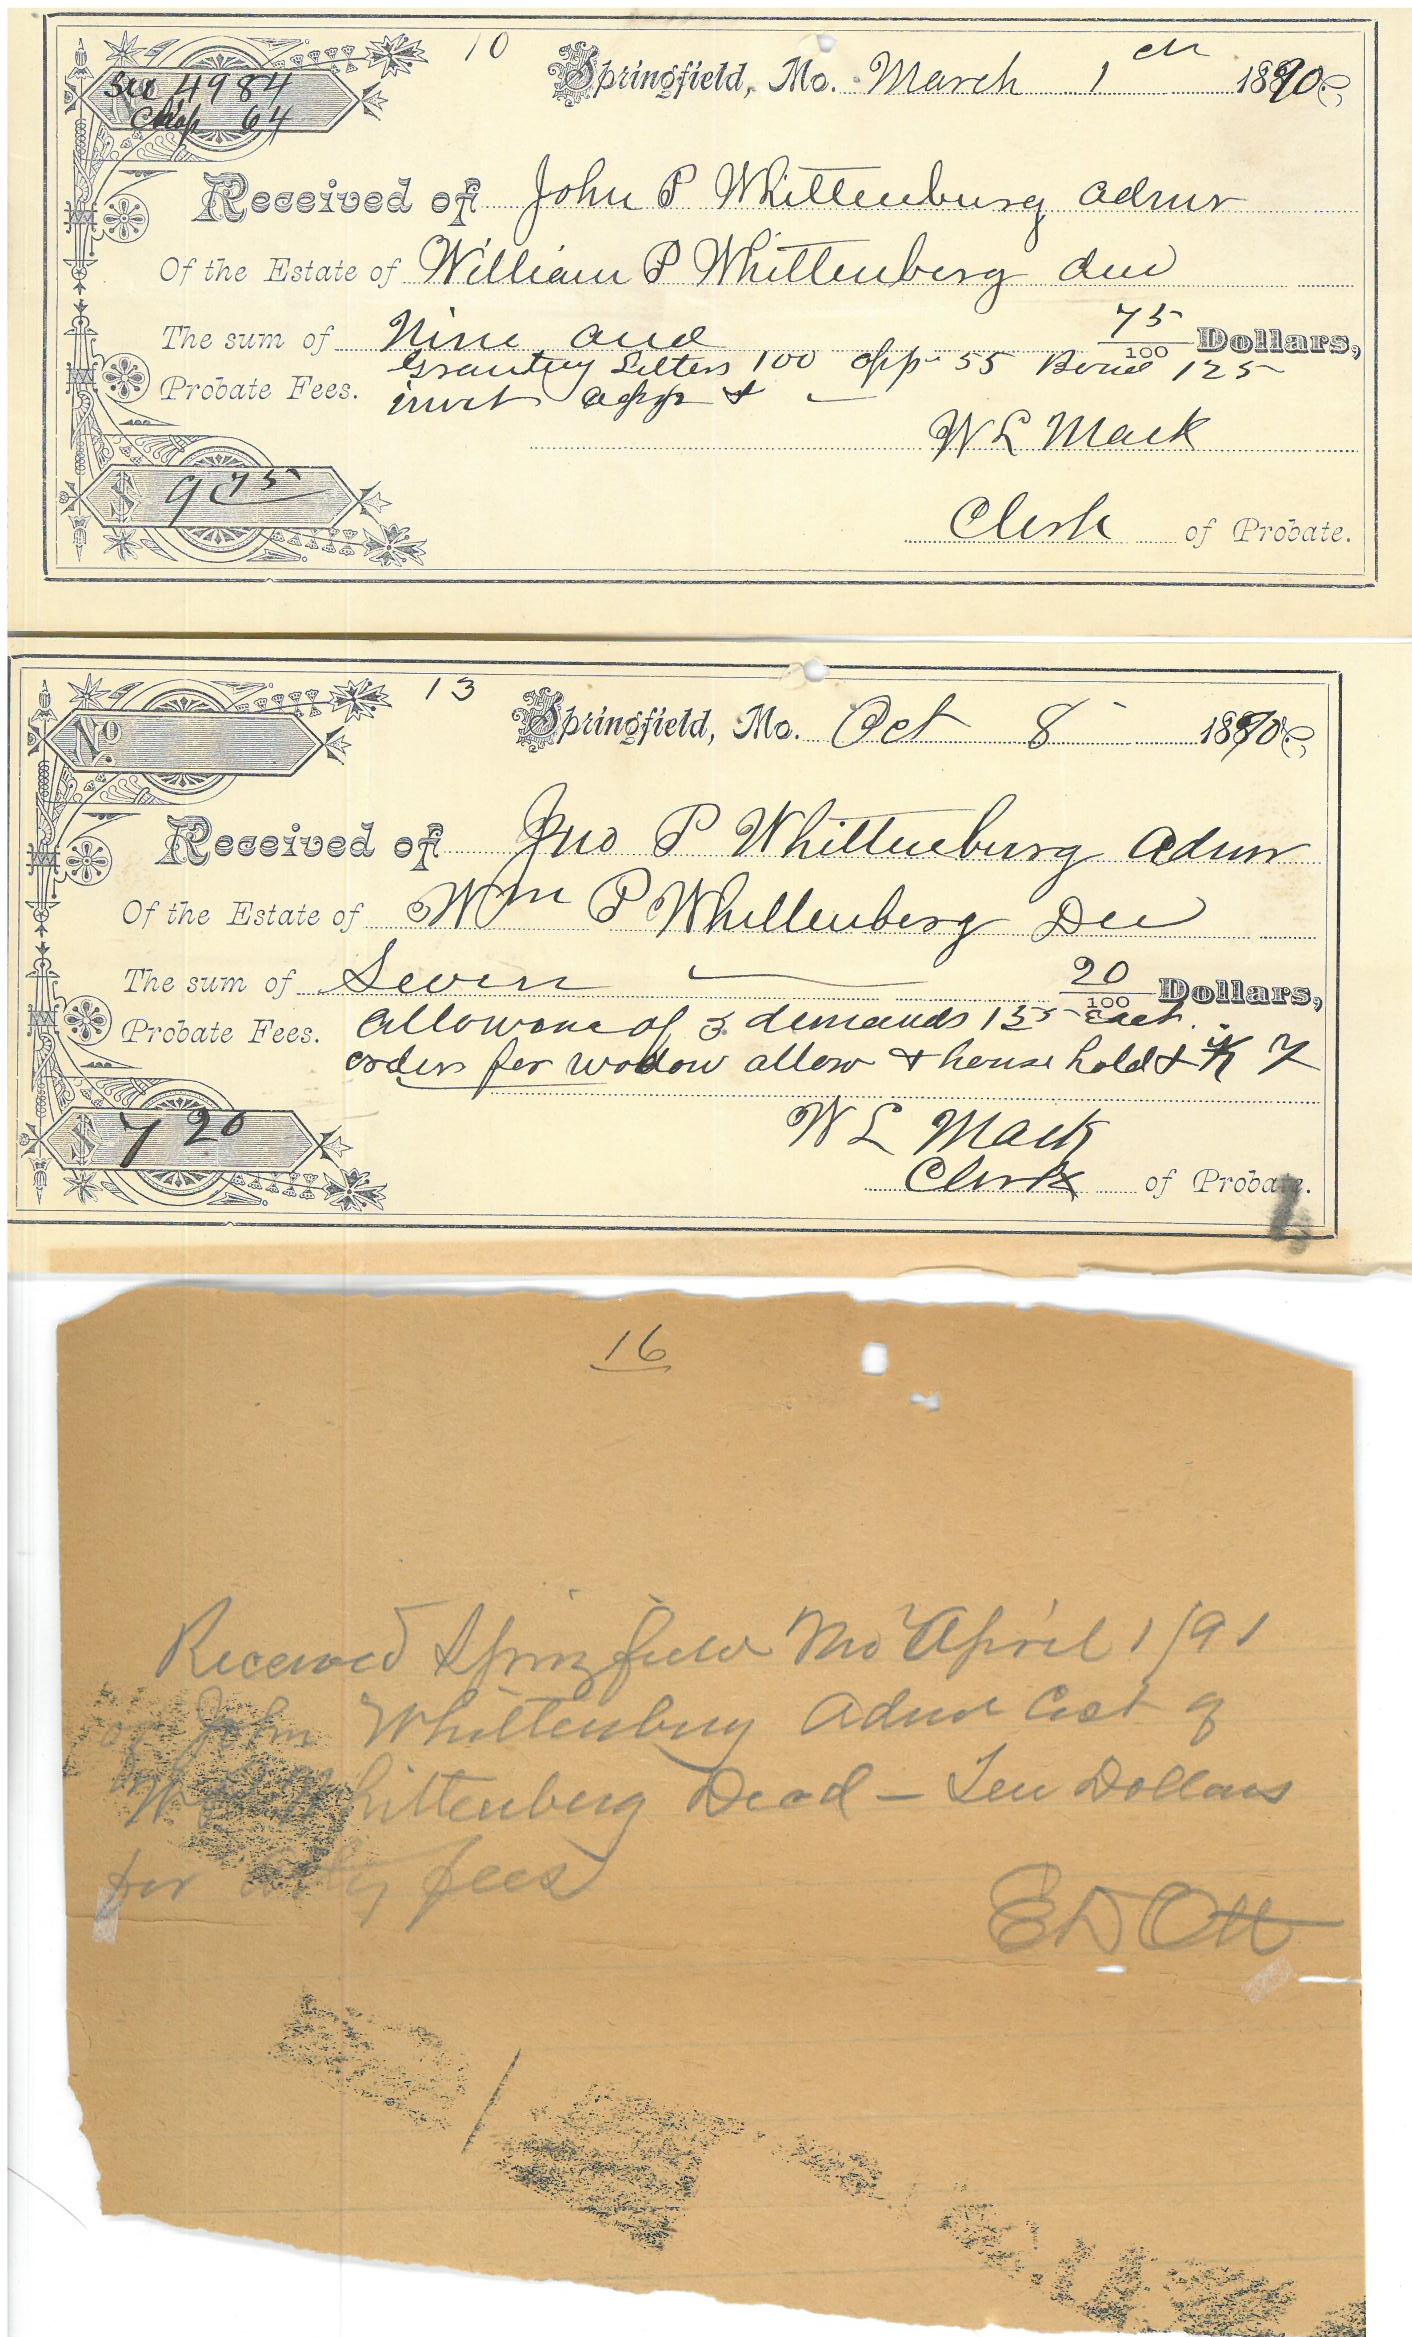 10
Springfield, Mo. March 1 1890
Sec 4984
Chap 64
Received of John P Whittenburg admr
Of the Estate of William P Whittenberg
The sum of Nine and 75/100 Dollars,
Granting Letters 100 opp 55 Bond 125
Probate Fees.
invt &
W L Mack
$ 9 75
Clerk of Probate.
13
Springfield, Mo. Oct 8 1890
No
Received of Jno P Whittenburg Admr
Of the Estate of Wm P Whittenberg Dec
The sum of Seven 20/100 Dollars,
Probate Fees. allowance of 3 demands each
orders for widow allow & house hold &
$ 7 20
W L Mack
Clerk of Probate.
16
Received Springfield Mo April 1/91
of John Whittenburg Admr Est of
Whittenberg Decd – Ten Dollars
for fees
E D Ott